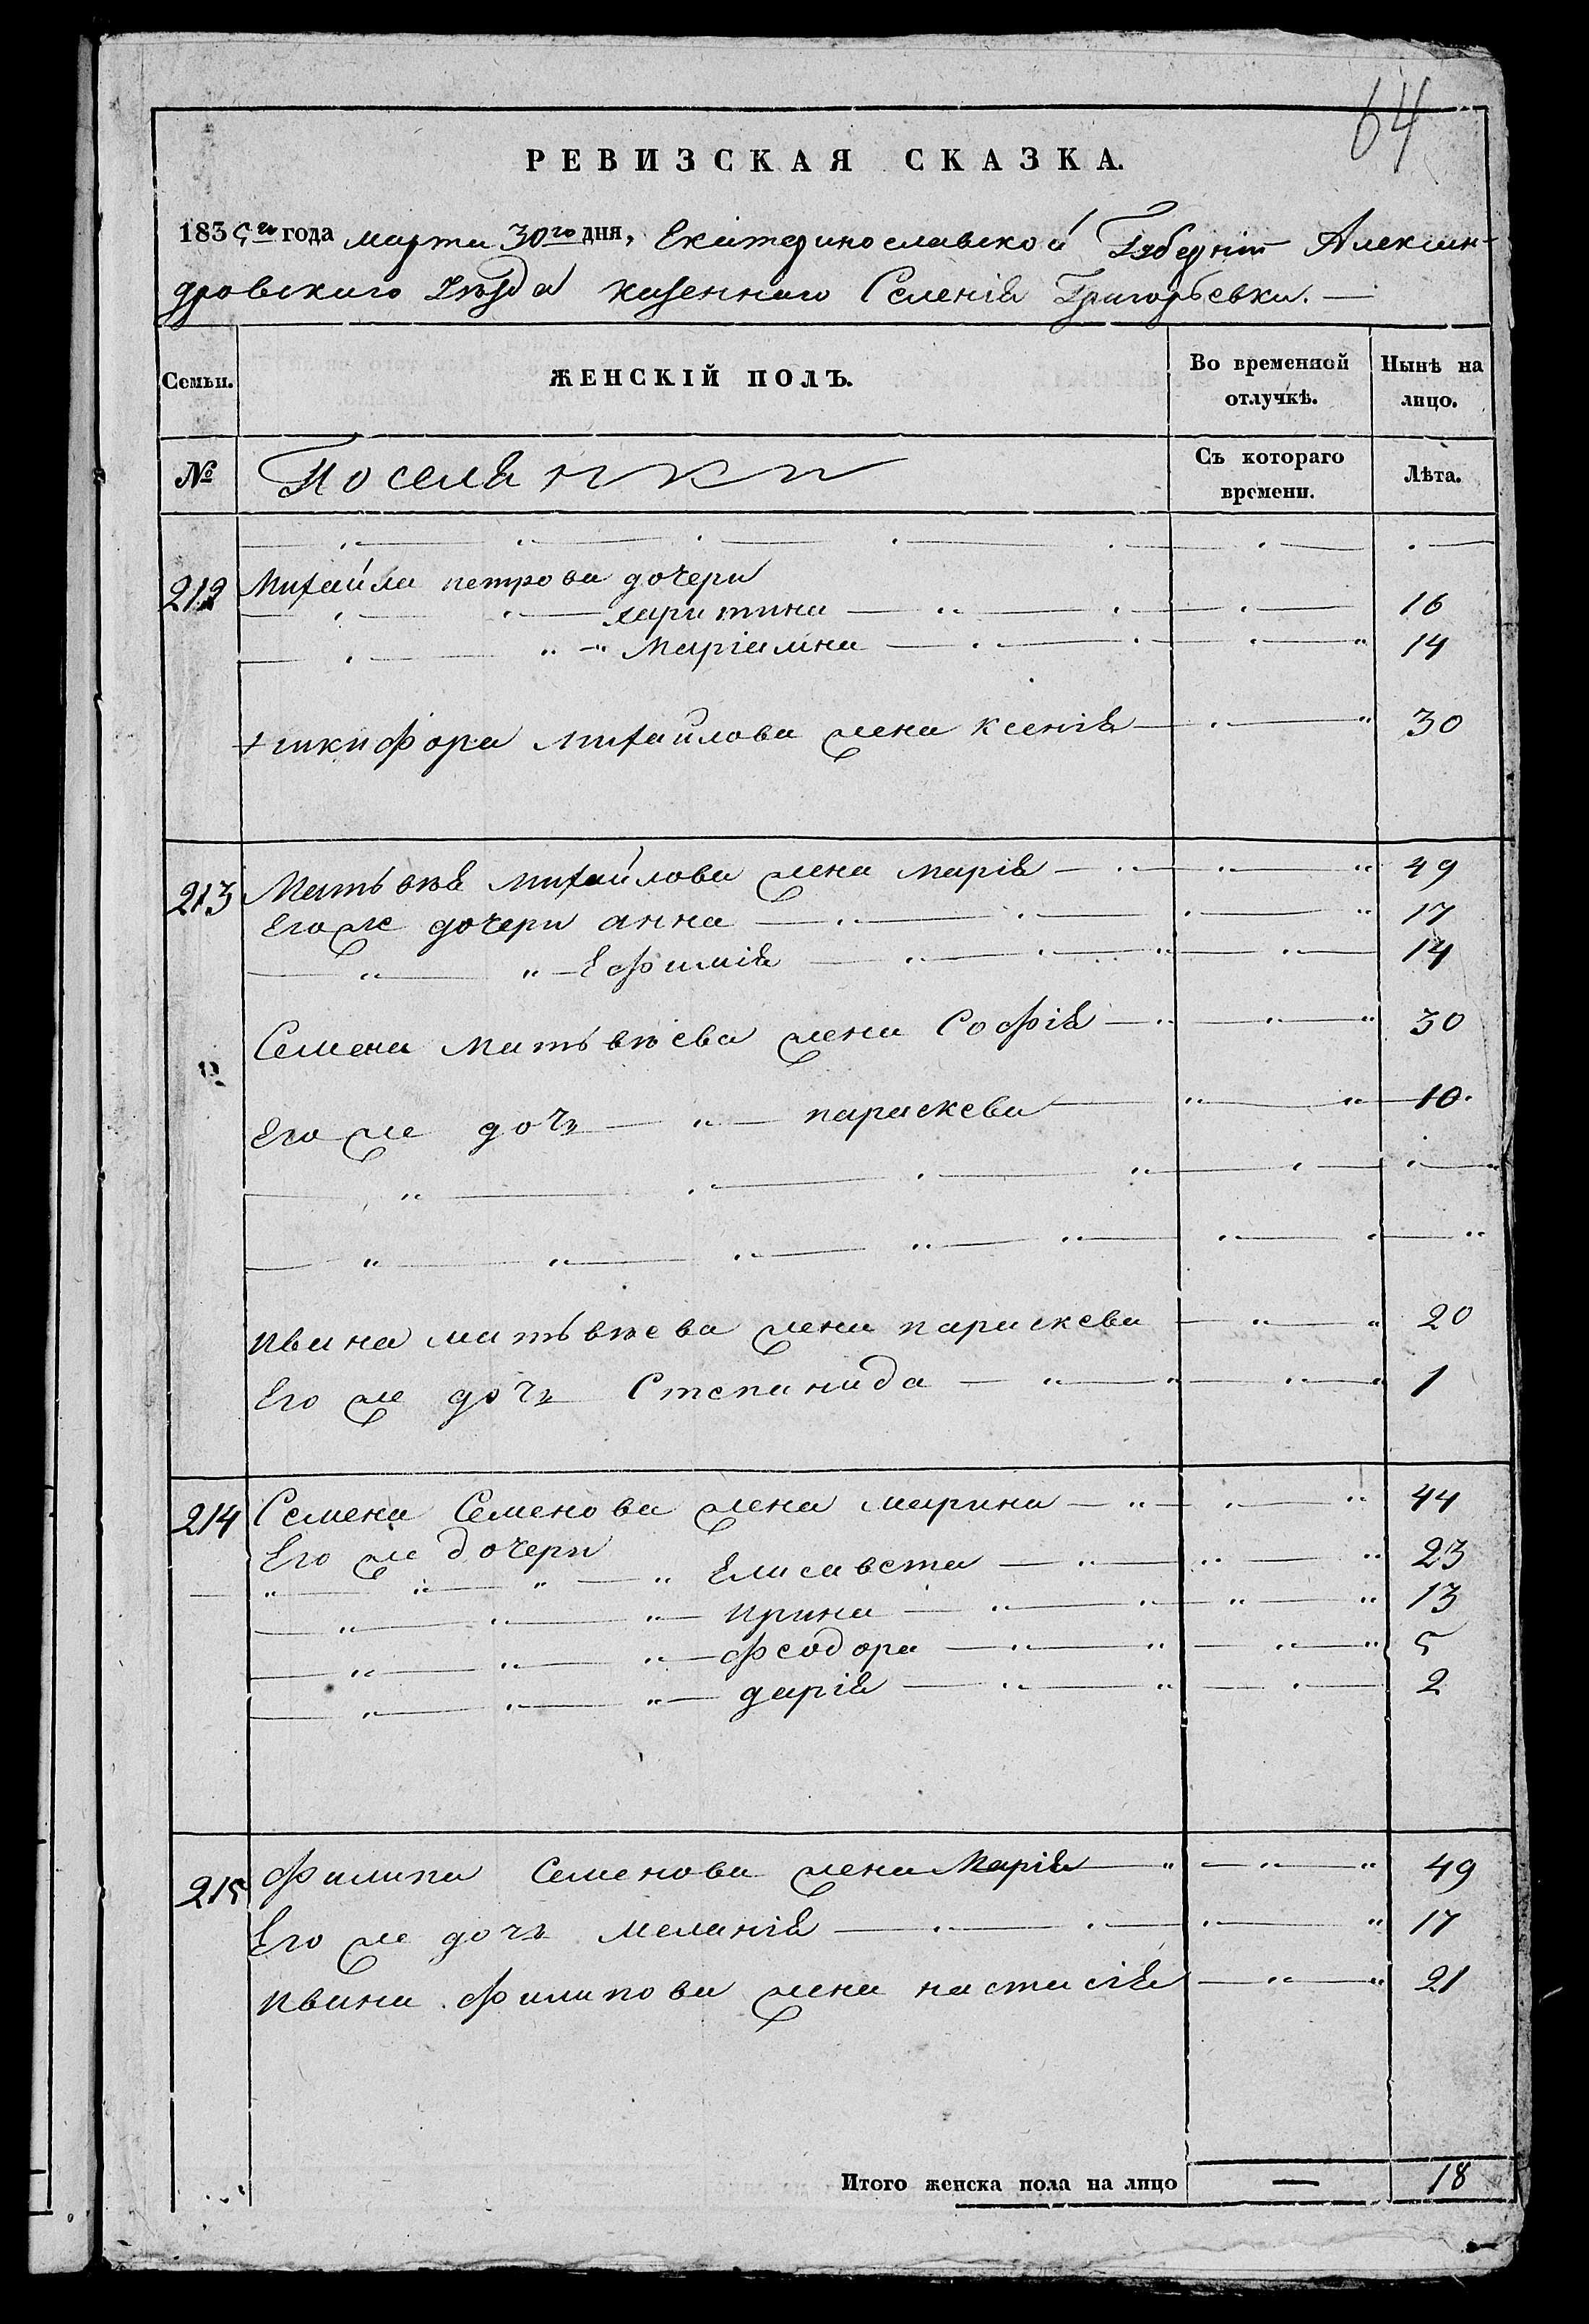 64
РЕВИЗСКАЯ СКАЗКА.
1835го года марта 30го дня, Екатеринославской Губерніи Алексан-
дровского Уезда казенного Селенія Григорьевки. —
Семьи. ЖЕНСКІЙ ПОЛЪ. Во временной отлучкѣ. Нынѣ на лицо.
№ Поселянки Съ котораго времени. Лѣта.
212 Михайла петрова дочери
харитина 16
Маріамна 14
никифора михайлова жена ксенія 30
213 Матьвѣя михайлова жена марія 49
Его же дочери анна 17
Ефимія 14
Семена матьвѣева жена Софія 30
Его же дочь параскева 10.
ивана матьвѣева жена параскева 20
Его же дочь Степанида 1
214 Семена Семенова жена марина 44
Его же дочери
Елисавета 23
ирина 13
феодора 5
дарія 2
215 филипа Семенова жена Марія 49
Его же дочь меланія 17
ивана филипова жена настасія 21
Итого женска пола на лицо — 18